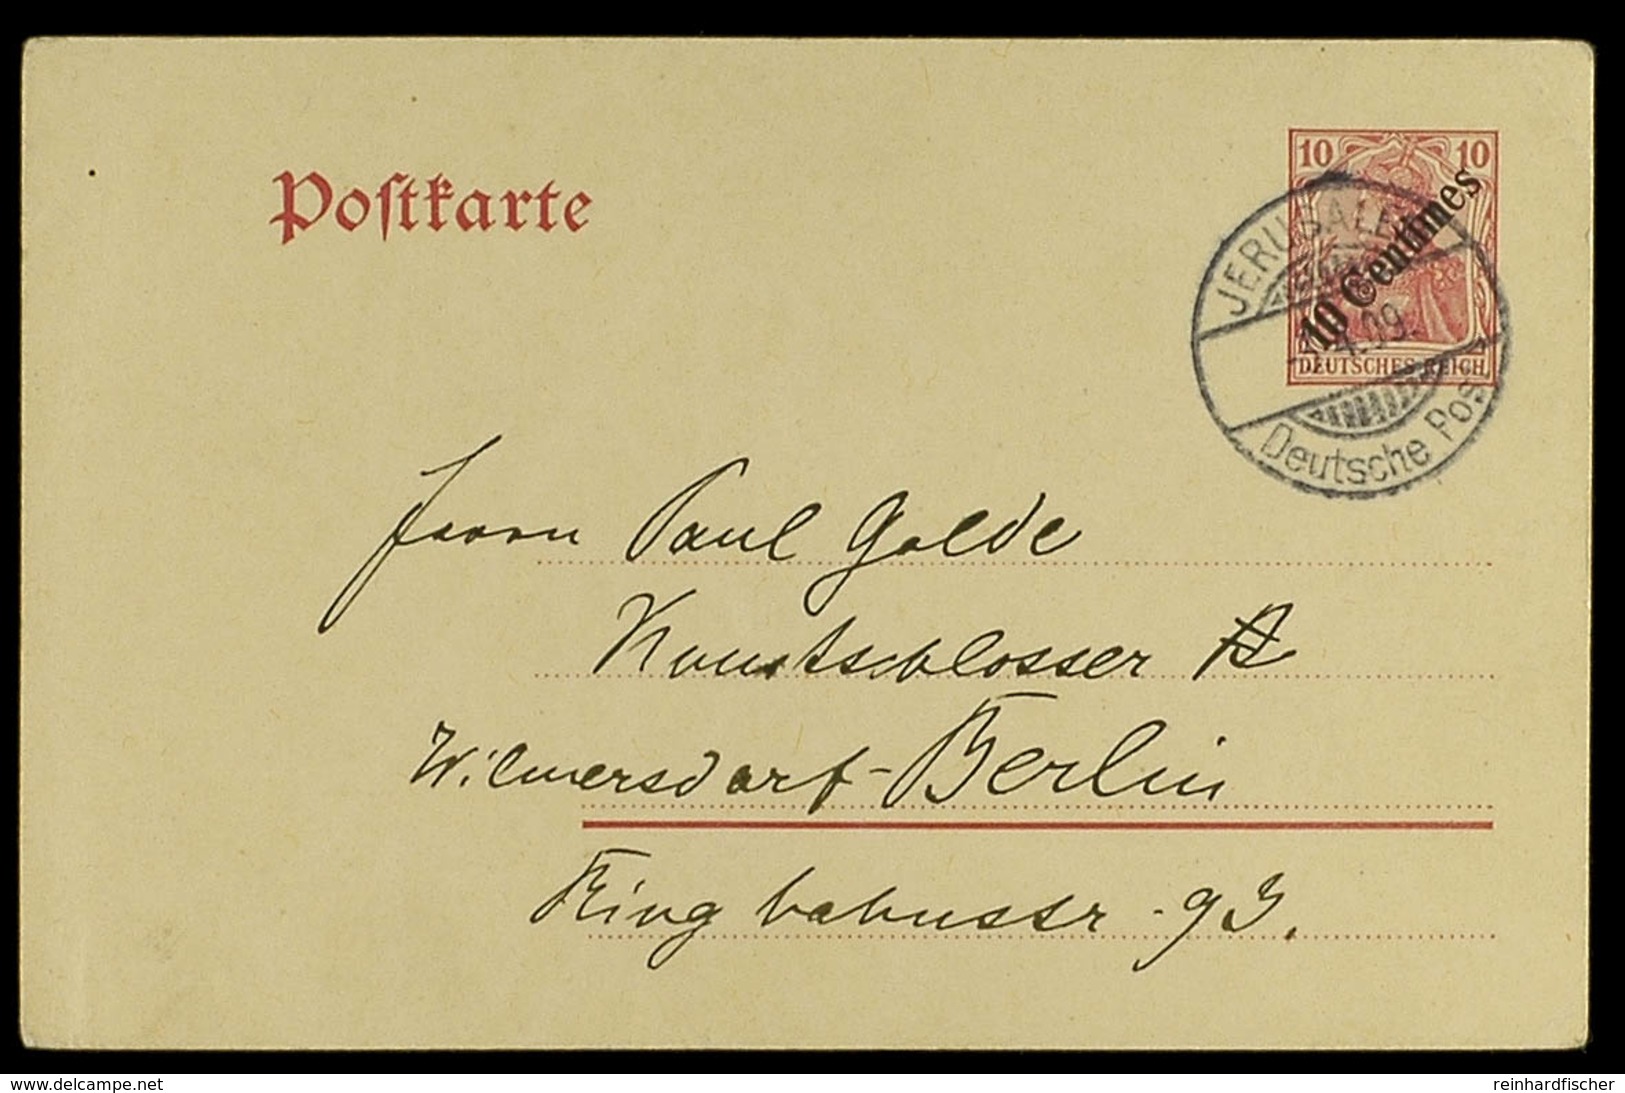 Postkarte
10 10
10 Centimes
DEUTSCHES REICH
JERUSALEM
4.09.
Deutsche Post
Herrn Paul Golde
Kunstschlosser
Wilmersdorf-Berlin
Ringbahnstr. 93.
www.delcampe.net
reinhardfischer